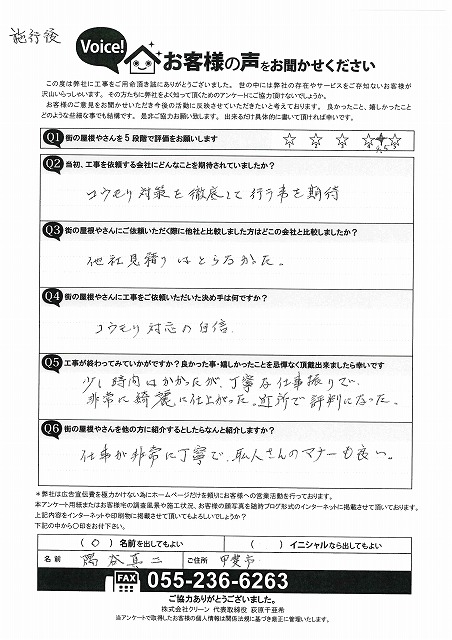 施行後
Voice!
お客様の声をお聞かせください
この度は弊社に工事をご用命頂き誠にありがとうございました。 世の中には弊社の存在やサービスをご存知ないお客様が
沢山いらっしゃいます。 その方たちに弊社をよく知って頂くためのアンケートにご協力頂けないでしょうか。
お客様のご意見をお聞かせいただき今後の活動に反映させていただきたいと考えております。 良かったこと、嬉しかったこと
どのような些細な事でも結構です。 是非ご協力お願い致します。 出来るだけ具体的に書いて頂ければ幸いです。
Q1 街の屋根やさんを5段階で評価をお願いします ☆ ☆ ☆ ☆ ☆
4.5
Q2 当初、工事を依頼する会社にどんなことを期待されていましたか?
コウモリ対策を徹底して行う事を期待
Q3 街の屋根やさんにご依頼いただく際に他社と比較しました方はどこの会社と比較しましたか?
他社見積りはとらなかった。
Q4 街の屋根やさんに工事をご依頼いただいた決め手は何ですか?
コウモリ対応の自信
Q5 工事が終わってみていかがですか?良かった事・嬉しかったことを忌憚なく頂戴出来ましたら幸いです
少し時間はかかったが、丁寧な仕事振りで、
非常に綺麗に仕上がった。近所で評判になった。
Q6 街の屋根やさんを他の方に紹介するとしたらなんと紹介しますか?
仕事が非常に丁寧で、職人さんのマナーも良い。
*弊社は広告宣伝費を極力かけない為にホームページだけを頼りにお客様への営業活動を行っております。
本アンケート用紙またはお客様宅の調査風景や施工状況、お客様の顔写真を随時ブログ形式のインターネットに掲載させて頂いております。
上記内容をインターネットや印刷物に掲載させて頂いてもよろしいでしょうか?
下記の中から○印をお付下さい。
( ○ ) 名前を出してもよい ( ) イニシャルなら出してもよい
名前 隅谷真二 ご住所 甲斐市
FAX 055-236-6263
ご協力ありがとうございました。
株式会社クリーン 代表取締役 荻原千亜希
当アンケートで取得したお客様の個人情報は関係法規に基づき厳正に管理いたします。